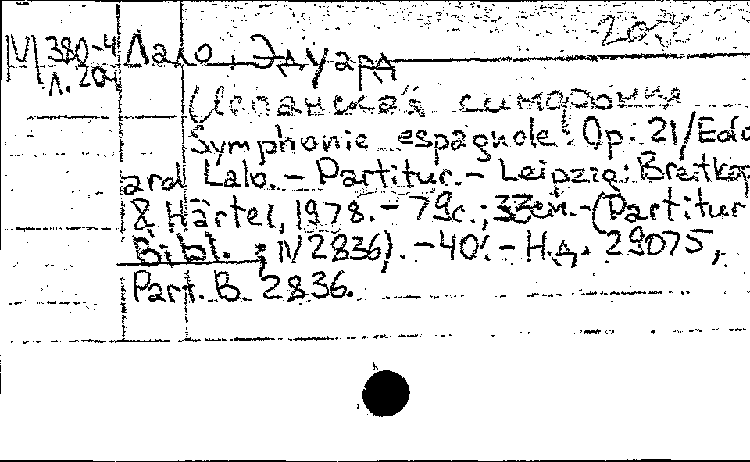 М 380-4 Лало, Эдуард
Л. 204
Испанская симфония
Symphonie espagnole: Op. 21/Edo
ard Lalo. - Partitur. - Leipzig: Breitkop
& Härtel, 1978. - 79с.; 33см. - (Partitur
Bibl. ; N 2836). - 40к. - Н.д. 29075,
Part. B. 2836.